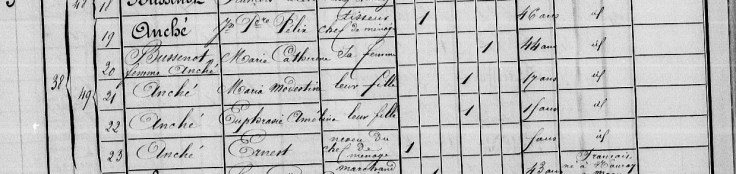 19 Anché Jn Bte Félix tisseur chef de ménage 1 46 ans id
20 Bussenot femme Anché Marie Catherine Sa femme 1 44 ans id
38 49 21 Anché Maria Modestine leur fille 1 17 ans id
22 Anché Euphrasie Améline leur fille 1 id
23 Anché Ernest neveu du chef de ménage 1 id
Français
né à
marchand 43 ans